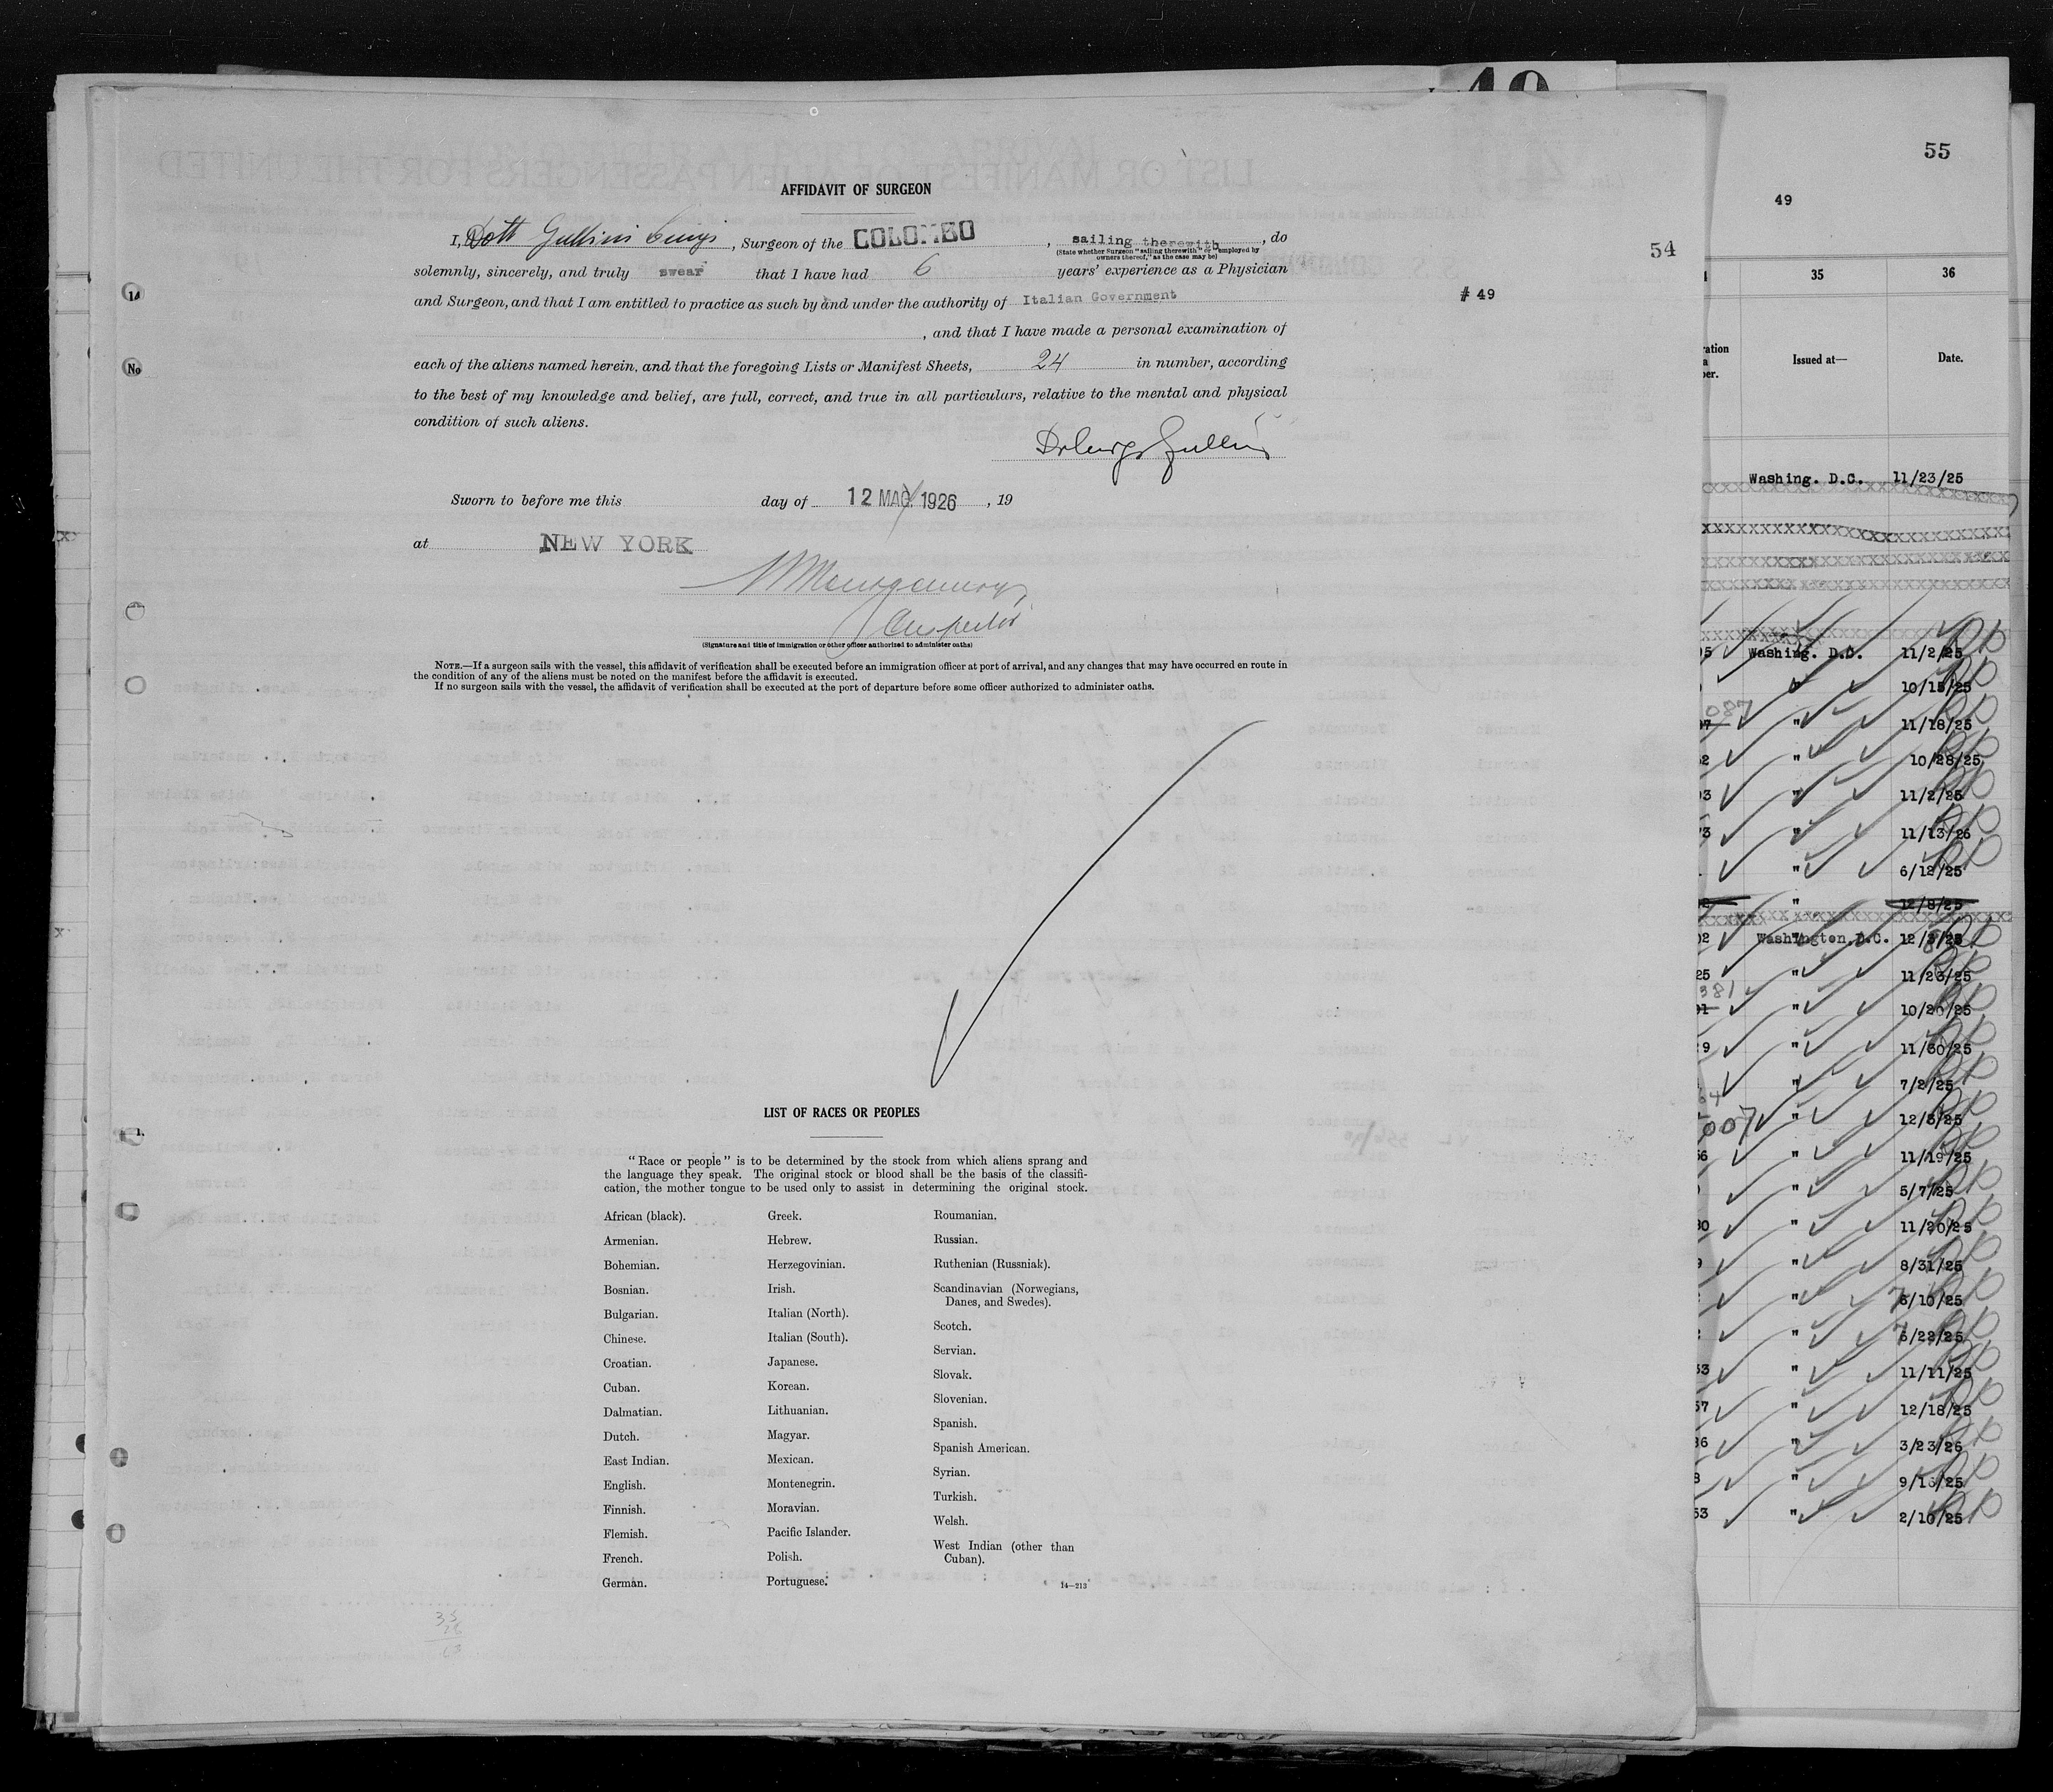 55
49
54
AFFIDAVIT OF SURGEON
I, Dott Gullini Luigi, Surgeon of the COLOMBO, sailing therewith, do
(State whether Surgeon "sailing therewith" or "employed by
owners thereof," as the case may be)
solemnly, sincerely, and truly swear that I have had 6 years' experience as a Physician
and Surgeon, and that I am entitled to practice as such by and under the authority of Italian Government
# 49
, and that I have made a personal examination of
each of the aliens named herein, and that the foregoing Lists or Manifest Sheets, 24 in number, according
to the best of my knowledge and belief, are full, correct, and true in all particulars, relative to the mental and physical
condition of such aliens.
Dr Luigi Gullini
Sworn to before me this day of 12 MAG. 1926, 19
at NEW YORK
Inspector
(Signature and title of immigration or other officer authorized to administer oaths)
NOTE.—If a surgeon sails with the vessel, this affidavit of verification shall be executed before an immigration officer at port of arrival, and any changes that may have occurred en route in
the condition of any of the aliens must be noted on the manifest before the affidavit is executed.
If no surgeon sails with the vessel, the affidavit of verification shall be executed at the port of departure before some officer authorized to administer oaths.
LIST OF RACES OR PEOPLES
"Race or people" is to be determined by the stock from which aliens sprang and
the language they speak. The original stock or blood shall be the basis of the classifi-
cation, the mother tongue to be used only to assist in determining the original stock.
African (black).
Armenian.
Bohemian.
Bosnian.
Bulgarian.
Chinese.
Croatian.
Cuban.
Dalmatian.
Dutch.
East Indian.
English.
Finnish.
Flemish.
French.
German.
Greek.
Hebrew.
Herzegovinian.
Irish.
Italian (North).
Italian (South).
Japanese.
Korean.
Lithuanian.
Magyar.
Mexican.
Montenegrin.
Moravian.
Pacific Islander.
Polish.
Portuguese.
Roumanian.
Russian.
Ruthenian (Russniak).
Scandinavian (Norwegians,
Danes, and Swedes).
Scotch.
Servian.
Slovak.
Slovenian.
Spanish.
Spanish American.
Syrian.
Turkish.
Welsh.
West Indian (other than
Cuban).
14—213
35 36
Issued at— Date.
Washing. D.C. 11/23/25
Washing. D.C. 11/2/25
" 10/15/25
" 11/18/25
" 10/28/25
" 11/2/25
" 11/13/25
" 6/12/25
" 12/8/25
Washington, D.C. 12/3/25
" 11/23/25
" 10/20/25
" 11/30/25
" 7/2/25
" 12/3/25
" 11/19/25
" 5/7/25
" 11/20/25
" 8/31/25
" 6/10/25
" 6/22/25
" 11/11/25
" 12/18/25
" 3/23/25
" 9/16/25
" 2/10/25